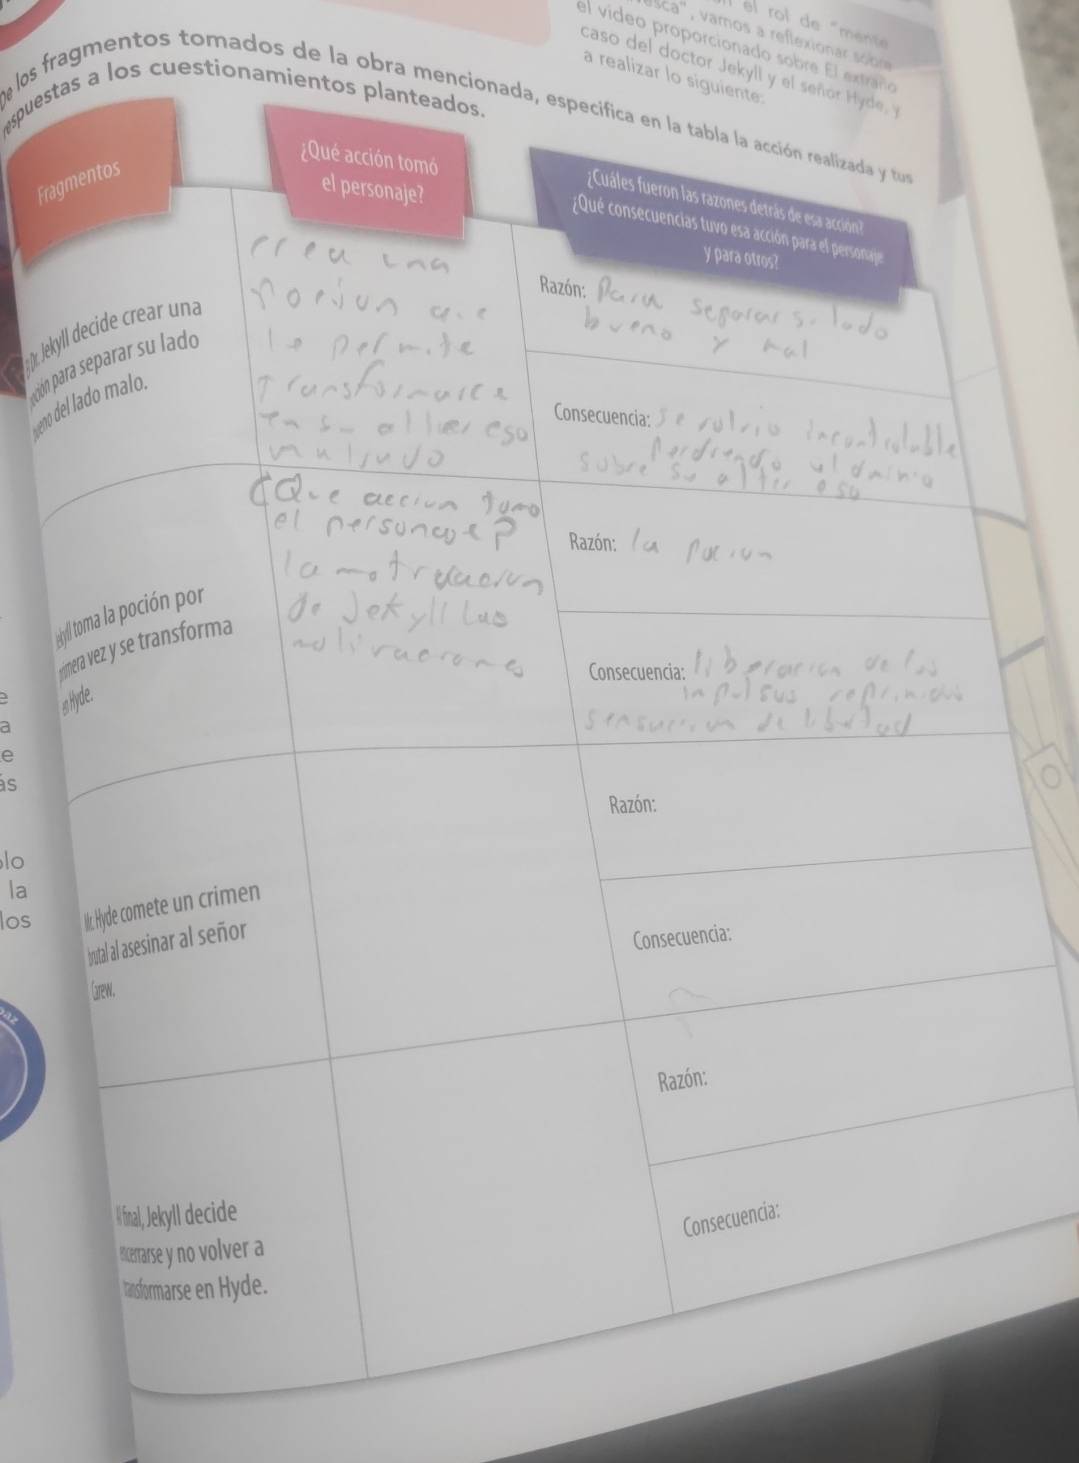 el rol de "mente
", vamos a reflexionar sobre
el video proporcionado sobre El extraño
caso del doctor Jekyll y el señor Hyde, y
a realizar lo siguiente:
De los fragmentos tomados de la obra mencionada, especifica en la tabla la acción realizada y tus
respuestas a los cuestionamientos planteados.
Fragmentos
¿Qué acción tomó
el personaje?
¿Cuáles fueron las razones detrás de esa acción?
¿Qué consecuencias tuvo esa acción para el personaje
y para otros?
Dr. Jekyll decide crear una
para separar su lado
del lado malo.
crea una
Posion que
le permite
Transformarse
en su
malvado
Razón: Para separar su lado
bueno y mal
Consecuencia: incontrolable
Perdiendo el dominio
sobre su alter ego
toma la poción por
vez y se transforma
en Hyde.
¿Que accion tomo
el personaje?
la motivacion
de Jekyll Las
motivaciones
Razón: la Pocion
Consecuencia: liberacion de los
impulsos reprimidos
sensacion de libertad
Mr. Hyde comete un crimen
brutal al asesinar al señor
Carew.
Razón:
Consecuencia:
Al final, Jekyll decide
encerrarse y no volver a
transformarse en Hyde.
Razón:
Consecuencia:
e
a
e
ás
lo
la
los